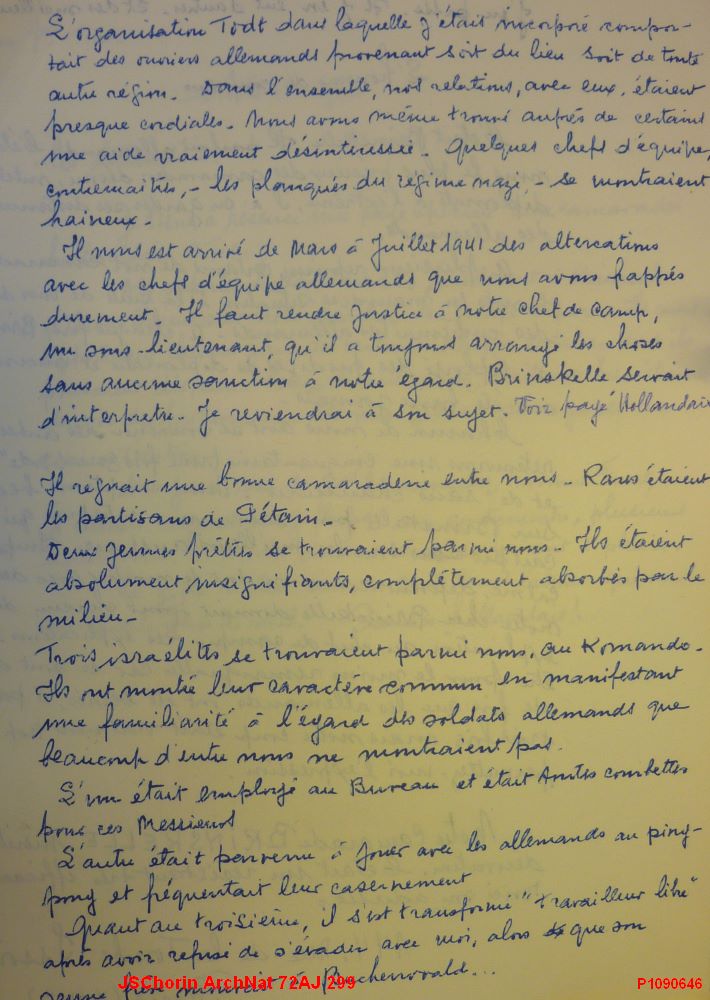 L'organisation Todt dans laquelle j'étais incorporé compor-
tait des ouvriers allemands provenant soit du lieu soit de toute
autre région. Dans l'ensemble, nos relations, avec eux, étaient
presque cordiales. Nous avons même trouvé auprès de certains
une aide vraiement désintéressée. Quelques chefs d'équipe,
contremaîtres, - les planqués du régime nazi, - se montraient
haineux.
Il nous est arrivé de Mars à Juillet 1941 des altercations
avec les chefs d'équipe allemands que nous avons frappés
durement. Il faut rendre justice à notre chef de camp,
un sous-lieutenant, qu'il a toujours arrangé les choses
sans aucune sanction à notre égard. Brinskelle servait
d'interprète. Je reviendrai à son sujet. Voir page Hollandais
Il régnait une bonne camaraderie entre nous. Rares étaient
les partisans de Pétain.
Deux jeunes prêtres se trouvaient parmi nous. Ils étaient
absolument insignifiants, complètement absorbés par le
milieu.
Trois israélites se trouvaient parmi nous, au Komando.
Ils ont montré leur caractère commun en manifestant
une familiarité à l'égard des soldats allemands que
beaucoup d'entre nous ne montraient pas.
L'un était employé au Bureau et était courbettes
pour ces Messieurs
L'autre était parvenu à jouer avec les allemands au ping-
pong et fréquentait leur casernement
Quant au troisième, il s'est transformé "travailleur libre"
après avoir refusé de s'évader avec moi, alors que son
jeune frère mourait à Buchenwald...
JSChorin ArchNat 72AJ 299
P1090646